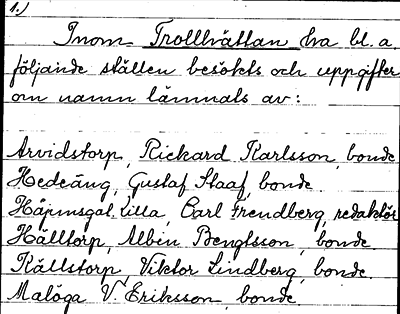 1.)
Inom Trollhättan ha bl. a.
följande ställen besökts och uppgifter
om namn lämnats av:
Arvidstorp, Rickard Karlsson, bonde
Hedeäng, Gustaf Staaf, bonde
Hájumsgal. Lilla, Carl Frendberg, redaktör
Hälltorp, Albin Bengtsson, bonde
Källstorp, Viktor Lindberg, bonde.
Malöga V. Eriksson, bonde